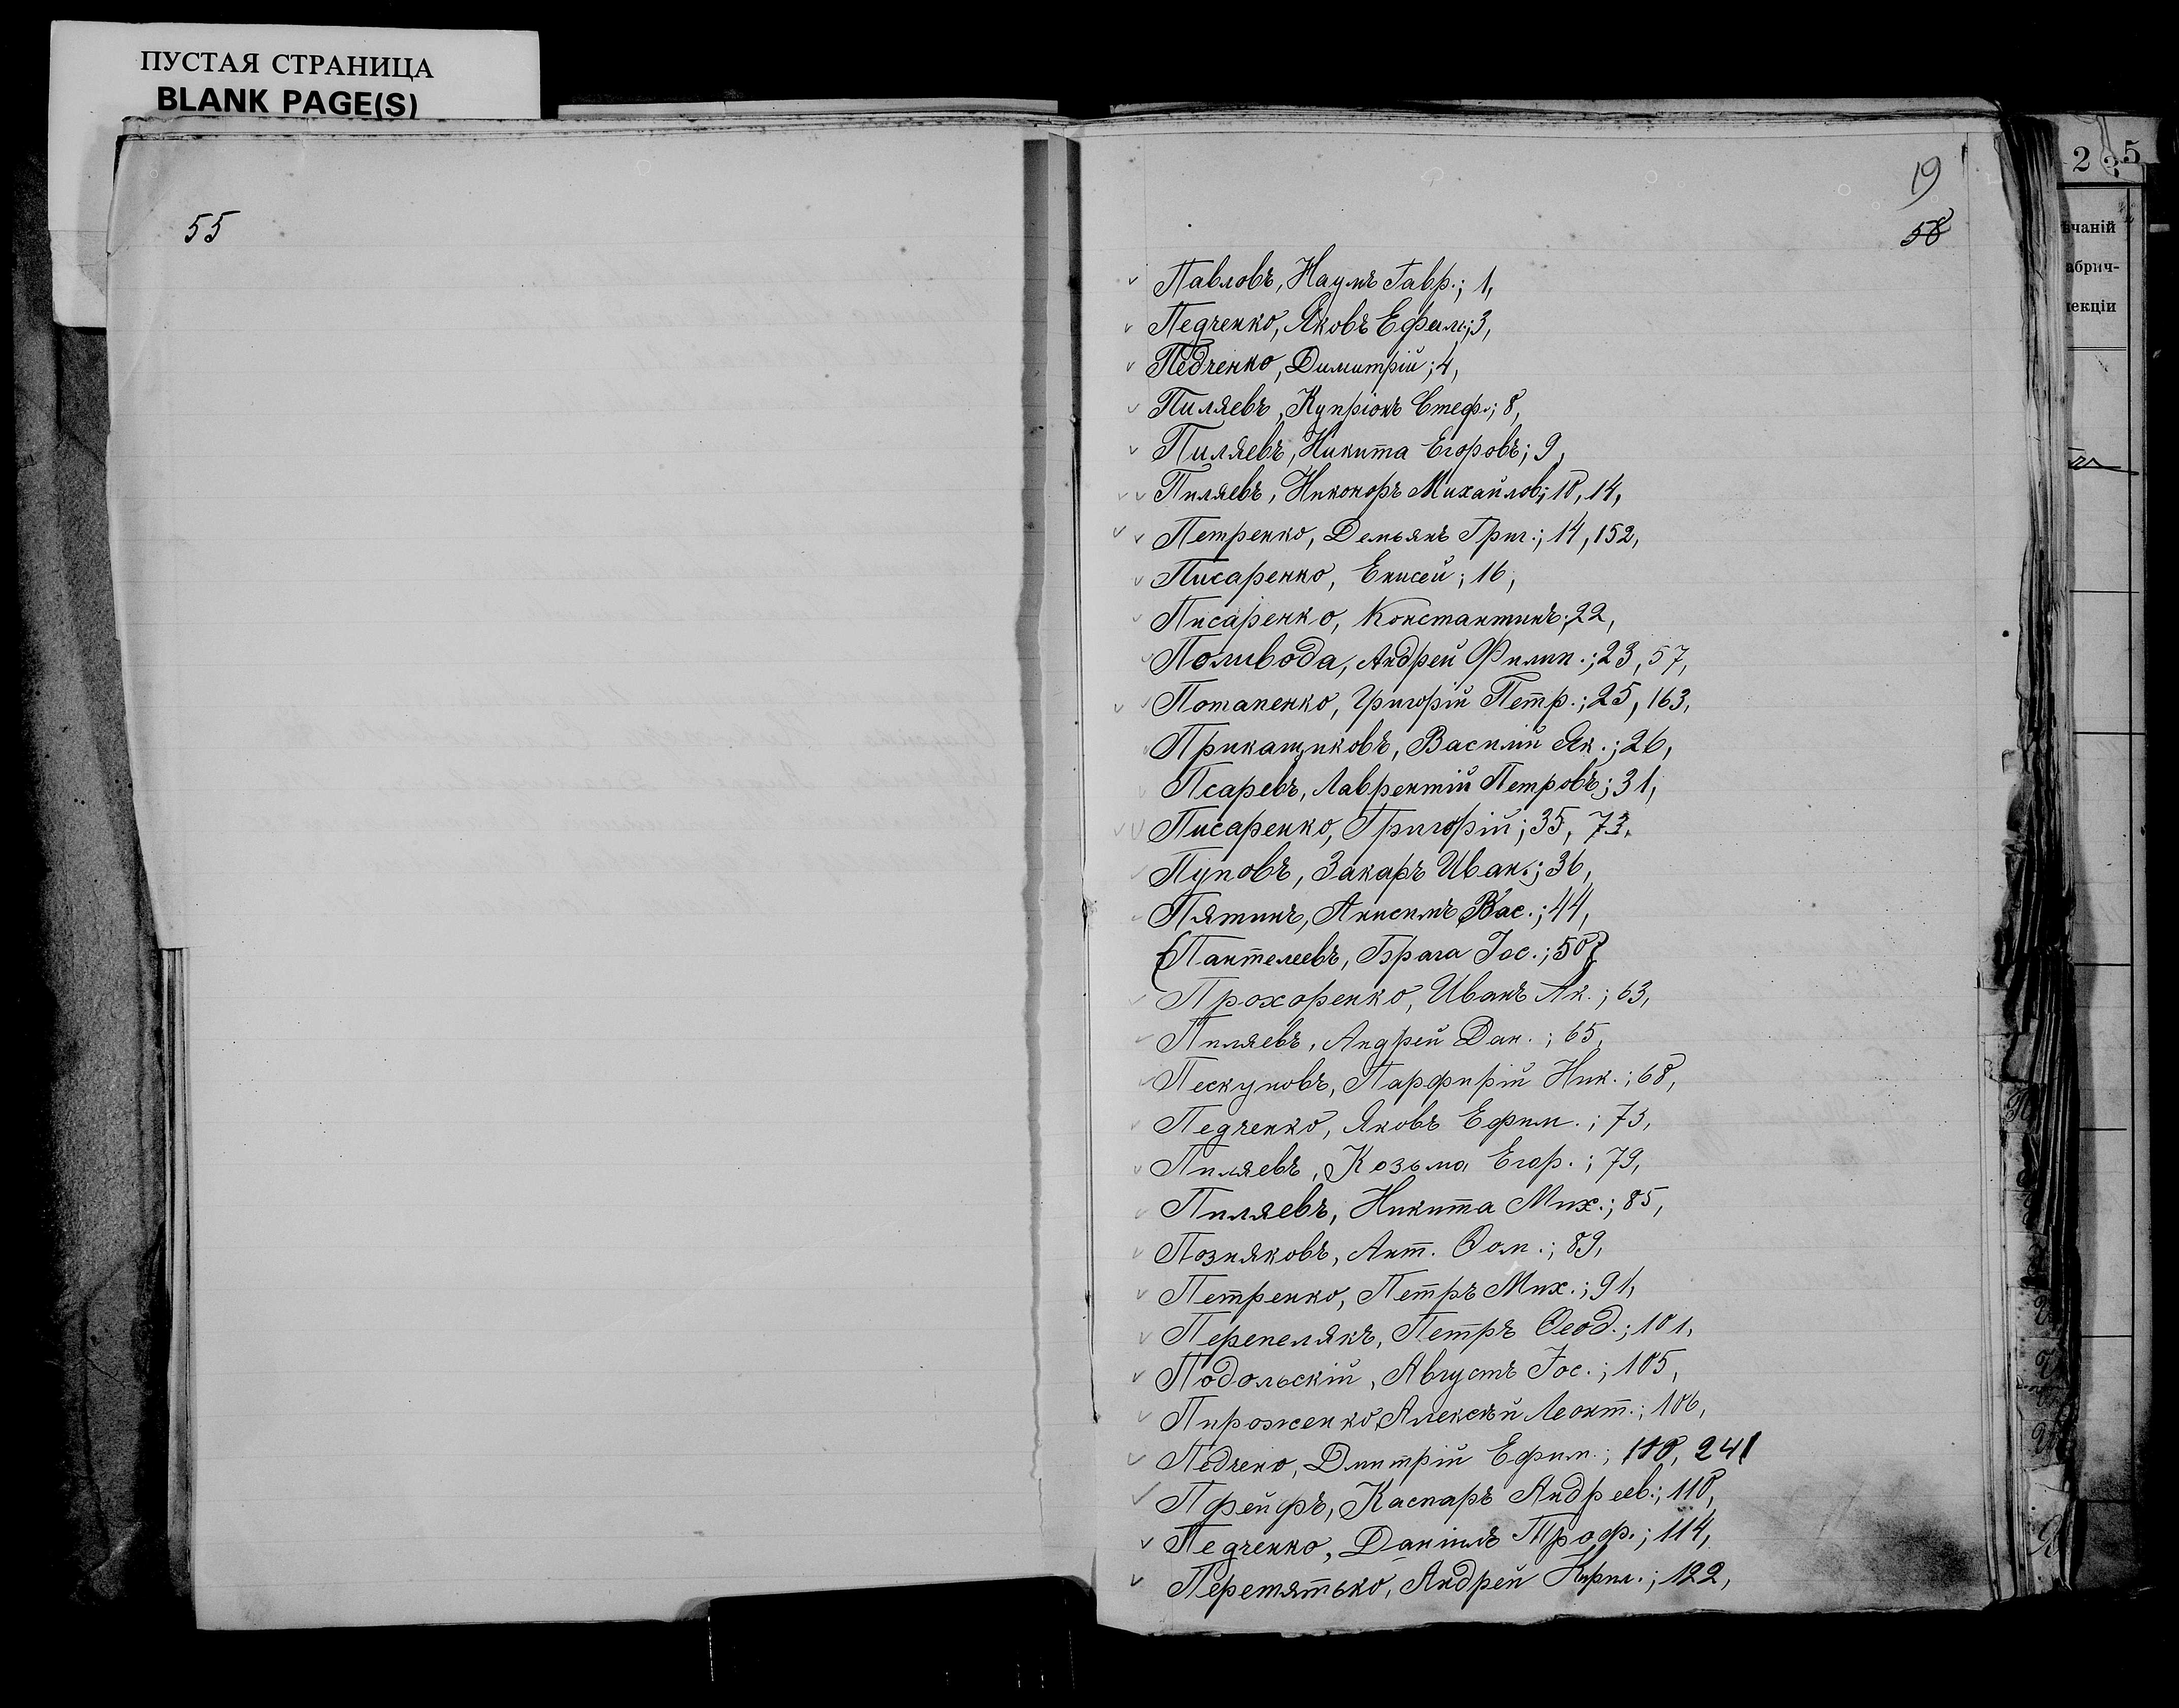 ПУСТАЯ СТРАНИЦА
BLANK PAGE(S)
55
19
58
Павловъ, Наумъ Гавр.; 1,
Педченко, Яковъ Ефим.; 3,
Педченко, Димитрій; 4,
Пиляевъ, Купріонъ Стеф.; 8,
Пиляевъ, Никита Егоровъ; 9,
Пиляевъ, Никоноръ Михайлов; 10, 14,
Петренко, Демьянъ Григ.; 14, 152,
Писаренко, Енисей; 16,
Писаренко, Константинъ; 22,
Поливода, Андрей Филип.; 23, 57,
Потапенко, Григорій Петр.; 25, 163,
Прикащиковъ, Василий Як.; 26,
Псаревъ, Лаврентій Петровъ; 31,
Писаренко, Григорій; 35, 73,
Пуповъ, Захаръ Иван.; 36,
Пятинъ, Анисимъ Вас.; 44,
{Пантелеевъ, Брага Іос.; 50}
Прохоренко, Иванъ Ак.; 63,
Пиляевъ, Андрей Дан.; 65,
Пескуновъ, Парфирій Ник.; 68,
Педченко, Яковъ Ефим.; 73,
Пиляевъ, Козьма Егор.; 79,
Пиляевъ, Никита Мих.; 85,
Позняковъ, Ант. Ѳом.; 89,
Петренко, Петръ Мих.; 91,
Перепелякъ, Петръ Ѳеод.; 101,
Подольскій, Августъ Іос.; 105,
Пироженко, Алексѣй Леонт.; 106,
Педчено, Дмитрій Ефим.; 108, 241
Пфейфъ, Каспаръ Андреев.; 110,
Педченко, Даніилъ Троф.; 114,
Перетятько, Андрей Кирил.; 122,
2
5
чаній
абрич-
екціи